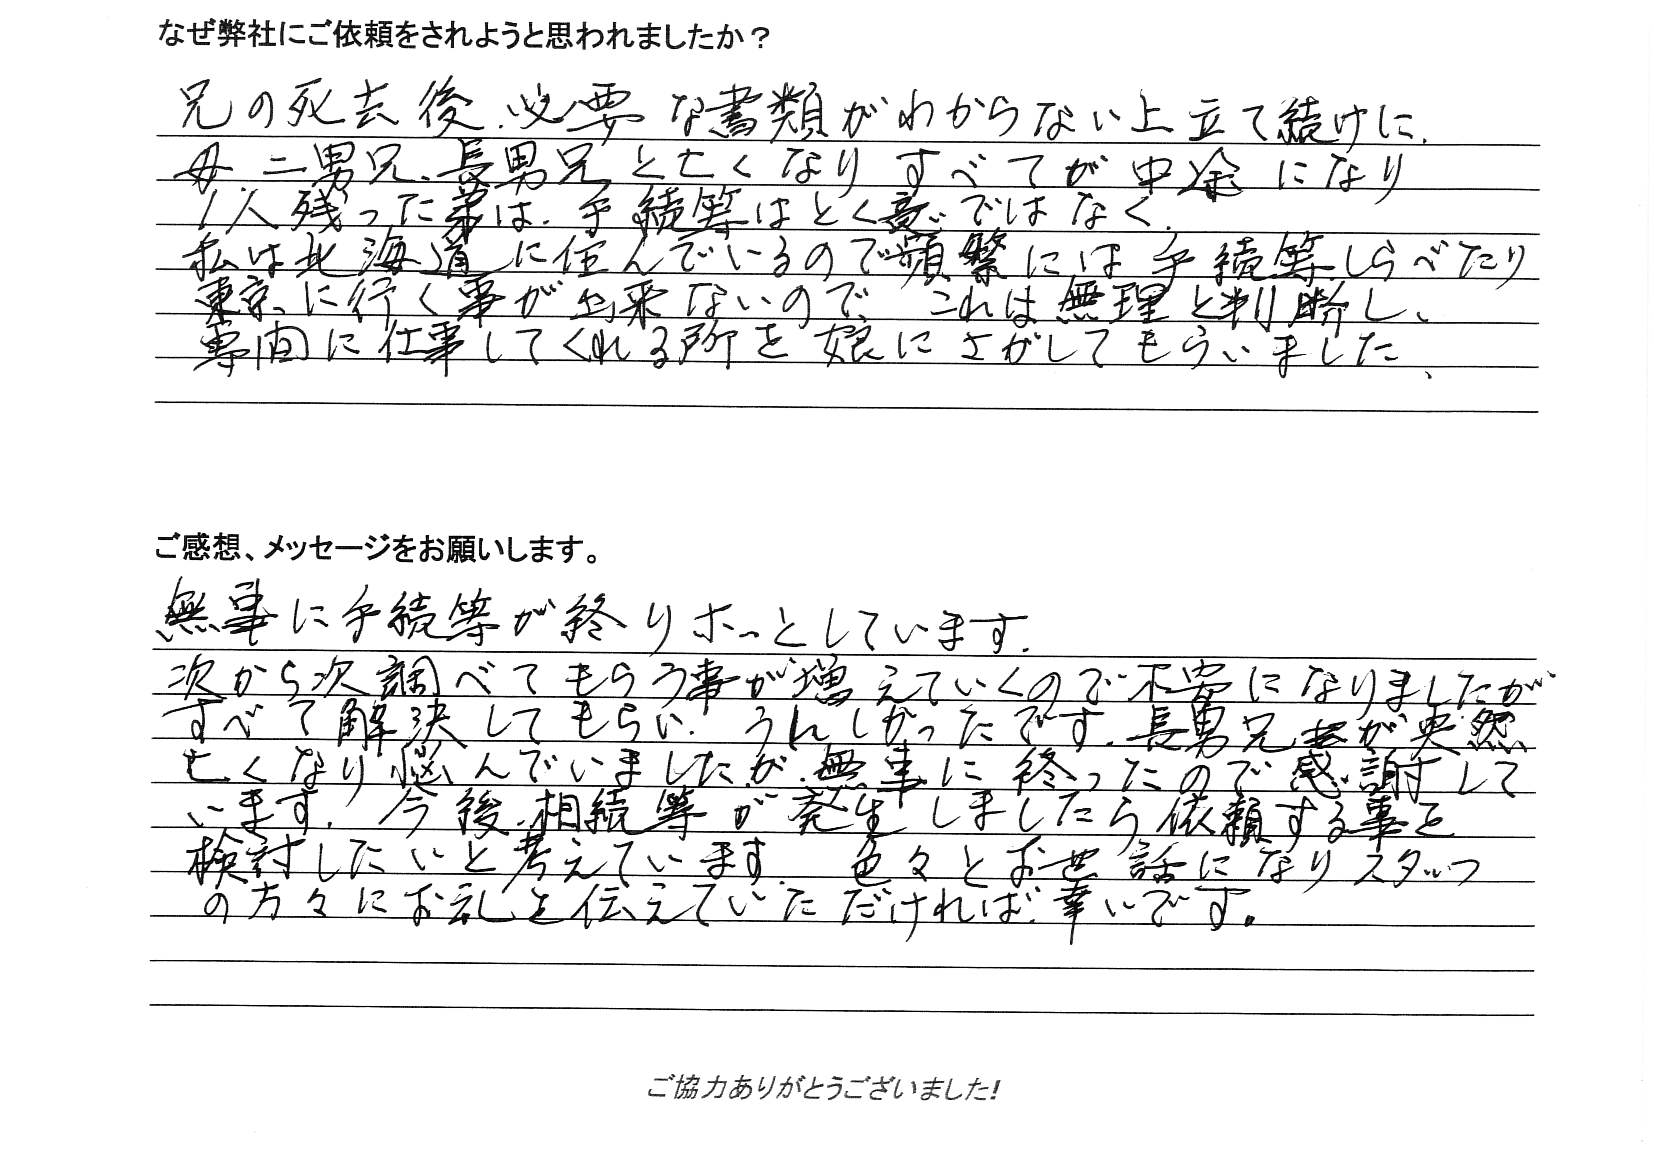 なぜ弊社にご依頼をされようと思われましたか？
兄の死去後、必要な書類がわからない上立て続けに、
母、二男兄、長男兄と亡くなりすべてが中途になり
1人残った弟は、手続等はとく意ではなく、
私は北海道に住んでいるので頻繁には手続等しらべたり
東京に行く事が出来ないので、これは無理と判断し、
専間に仕事してくれる所を娘にさがしてもらいました、
ご感想、メッセージをお願いします。
無事に手続等が終りホッとしています。
次から次調べてもらう事が増えていくので不安になりましたが
すべて解決してもらい、うれしかったです。長男兄が突然
亡くなり悩んでいましたが、無事に終ったので感謝して
います。今後、相続等が発生しましたら依頼する事を
検討したいと考えています。色々とお世話になりスタッフ
の方々にお礼を伝えていただければ、幸いです。
ご協力ありがとうございました!